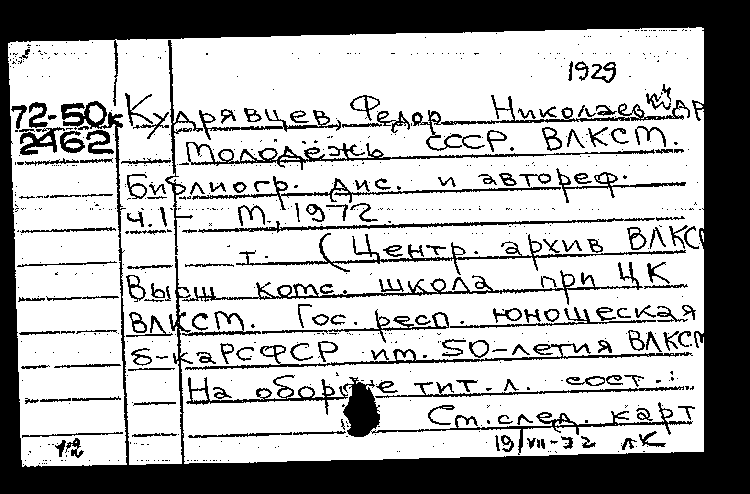 1929
72-50к Кудрявцев, Федор Николаевич др
2462 Молодежь СССР. ВЛКСМ.
Библиогр. дис. и автореф.
ч.1- М., 1972.
т. (Центр. архив ВЛКСМ
Высш комс. школа при ЦК
ВЛКСМ. Гос. респ. юношеская
б-ка РСФСР им. 50-летия ВЛКСМ
На обороте тит. л. сост.:
См. след. карт
19/VII-72 лК